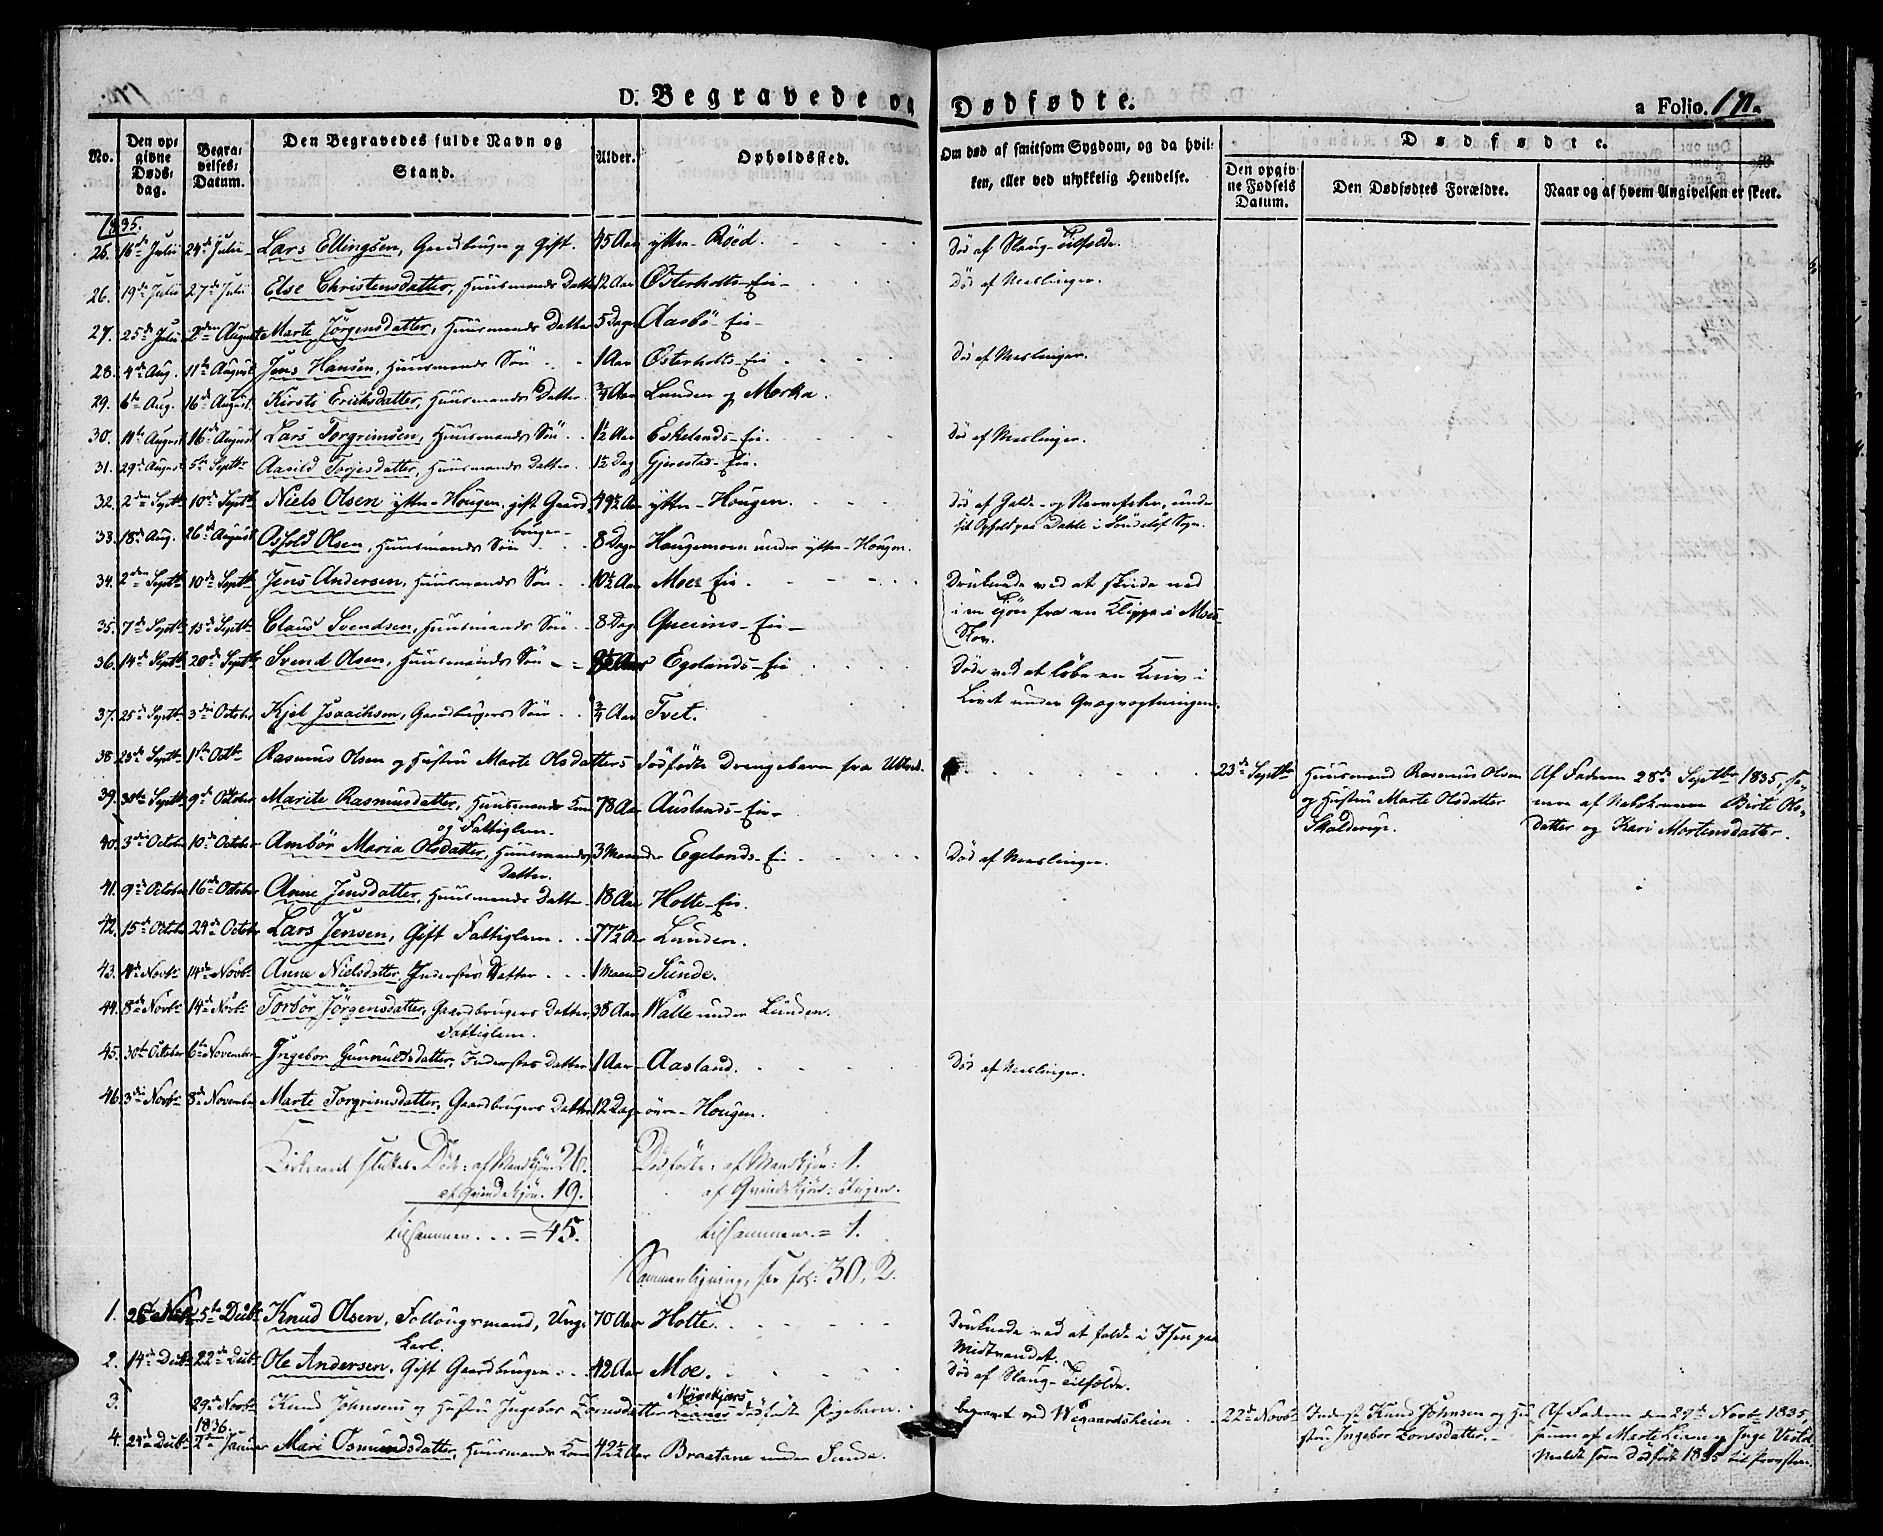 D. Begravede og Dødfødte.
a Folio. 171.
No.
Den opgivne Døds-dag.
Begravelses-Datum.
Den Begravedes fulde Navn og Stand.
Alder.
Opholdssted.
Om død af smitsom Sygdom, og da hvilken, eller ved ulykkelig Hendelse.
Dødfødte.
Den opgivne Fødsels Datum.
Den Dødfødtes Forældre.
Naar og af hvem Angivelsen er skeet.
1835.
26. 16de Julii 24de Julii Lars Ellingsen, Gaardbruger og gift. 45 Aar yttre-Röed. Död af Slaug-Tilfælde.
26. 19de Julii 27de Julii Else Christensdatter, Huusmands Datter 12 Aar Österholts-Eie Död af Meslinger.
27. 25de Julii 2den August Marte Jörgensdatter, Huusmands Datter 5 Dage Aasbö-Eie
28. 4de Aug. 11te August Jens Hansen, Huusmands Sön 1 Aar Österholts-Eie Död af Meslinger.
29. 6te Aug. 16de August Kirsti Eriksdatter, Huusmands Datter 3/4 Aar Lunden og Morka.
30. 11te August 16de August Lars Torgrimsen, Huusmands Sön 1/2 Aar Eskelands-Eie. Död af Meslinger.
31. 29de August 5te Septbr Aasild Torjesdatter, Huusmands Datter. 1/2 Dag Gjerestad-Eie.
32. 2den Septbr 10de Septbr Niels Olsen yttre-Hougen, gift Gaardbruger 49 1/2 Aar yttre-Hougen. Död af Galde- og Nervefeber, under sit Ophold paa Dahle i Söndelöf Sogn.
33. 18de Aug. 26de August Olsen, Huusmands Sön 8 Dage Hougemoen under yttre-Hougen.
34. 2den Septbr 10de Septbr Jens Andersen, Huusmands Sön 10 1/2 Aar Moes Eie. Druknede ved at skride ned
i en Tjön fra en Klippe i Moes
Skov.
35. 7de Septbr 13de Septbr Claus Svendsen, Huusmands Sön 8 Dage Qveims-Eie
36. 14de Septbr 20de Septbr Svend Olsen, Huusmands Sön Aar Egelands-Eie Döde ved at löbe en Kniv i
Livet under Qvægvogtningen.
37. 25de Septbr 3die October Kjel Isaaksen, Gaardbrugers Sön 3/4 Aar Tvet.
38. 23de Septbr 1ste Octbr Rasmus Olsen og Hustru Marte Olsdatters dödfödte Drengebarn fra 23de Septbr Huusmand Rasmus Olsen og Hustru Marte Olsdatter Skalderup. Af Faderen 28de Septbr 1835, Birte Olsdatter og Kari Mortensdatter.
39. 30te Septbr 9de October Marite Rasmusdatter, Huusmands Kone og Fattiglem. 78 Aar Auslands-Eie
40. 3die October 10de October Ambör Maria Olsdatter, Huusmands Datter. 3 Maaneder Egelands-Eie Död af Meslinger.
41. 9de October 16de October Anne Jensdatter, Huusmands Datter 18 Aar Holte-Eie.
42. 15de October 24de October Lars Jensen, Gift Fattiglem. 77 1/2 Aar Lunden.
43. Novbr 14de Novbr Anne Nielsdatter, Inderstes Datter 1 Maaned Sunde.
44. 8de Novbr 14de Novbr Torbör Jörgensdatter, Gaardbrugers Datter, Fattiglem. 38 Aar Walle under Lunden.
45. 30te October 6te November Ingebor Gunnulsdatter, Inderstes Datter 1 Aar Aasland. Död af Meslinger.
46. 3die Novbr 8de November Marte Torgrimsdatter, Gaardbrugers Datter 12 Dage övre-Hougen.
Kirkeaaret sluttet. Döde: af Mandkjön 26.
af Qvindekjön. 19.
tilsammen = 45.
Dödfödte: af Mandkjön: 1.
af Qvindekjön: Ingen.
tilsammen = 1.
Sammenligning, see fol: 30, 2.
1. 26de Novbr 5te Decbr Knud Olsen, Follougsmand, Ungkarl. 70 Aar Holte. Druknede ved at falde i Isen paa
Midtvandet.
2. 14de Decbr 22de Decbr Ole Andersen, Gift Gaardbruger 42 Aar Moe. Död af Slaug-Tilfælde.
3. 29de Novbr Knud Johnsens og Hustru Ingebor dödfödte Pigebarn. begravet ved Wegaardsheien 22de Novbr Inderst Knud Johnsen og Hustru Ingebor Af Faderen den 29de Novbr 1835,
4. 24de Decbr 1836 2den Januar Mari Osmundsdatter, Huusmands Kone 42 1/2 Aar Braatane under Sunde.